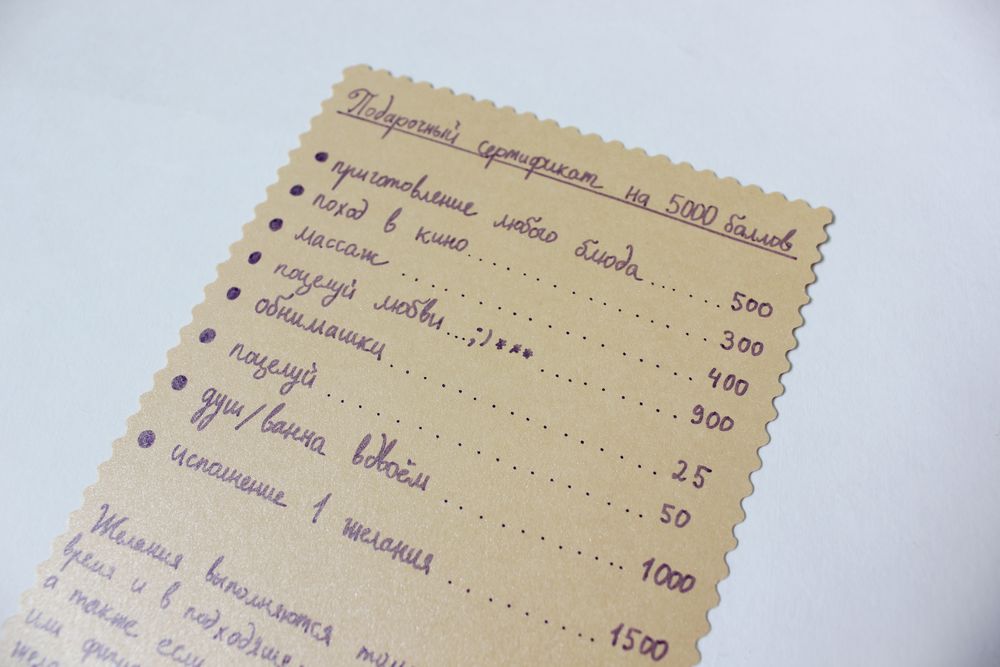 Подарочный сертификат на 5000 баллов
• приготовление любого блюда....... 500
• поход в кино................... 300
• массаж ........................ 400
• поцелуй любви...;)*** ......... 900
• обнимашки ..................... 25
• поцелуй ....................... 50
• душ/ванна вдвоём .............. 1000
• исполнение 1 желания .......... 1500
Желания выполняются
время и в
а также если
или